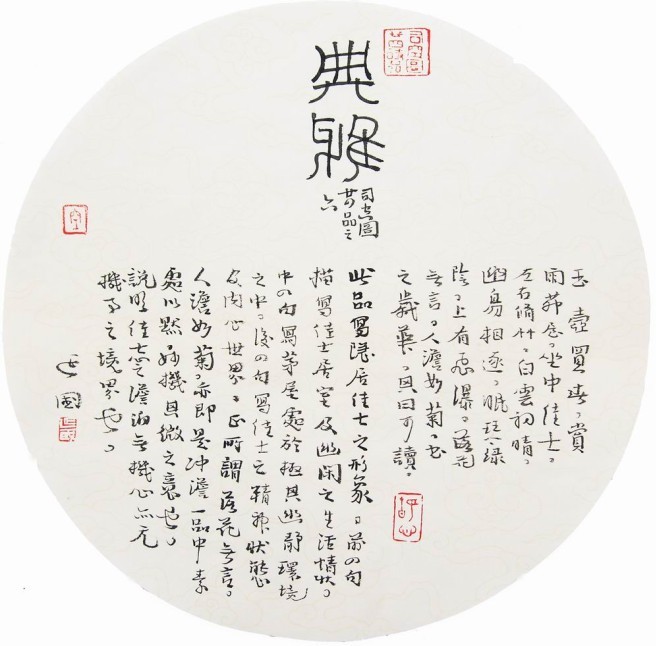 典雅
司空圖
廿四品之
六
玉壺買春,賞
雨茆屋,坐中佳士,
左右脩竹,白雲初晴,
幽鳥相逐,眠琴綠
陰,上有飛瀑,落花
無言,人澹如菊,書
之歲華,其曰可讀。
此品寫隱居佳士之形象。前四句
描寫佳士居室及幽閑之生活情狀。
中四句寫茅屋處於極其幽靜環境
之中。後四句寫佳士之精神狀態
及內心世界。正所謂落花無言。
人澹如菊。亦即是沖澹一品中素
處以默妙機其微之意也。
說明佳士之澹泊無機心亦无
機事之境界也。